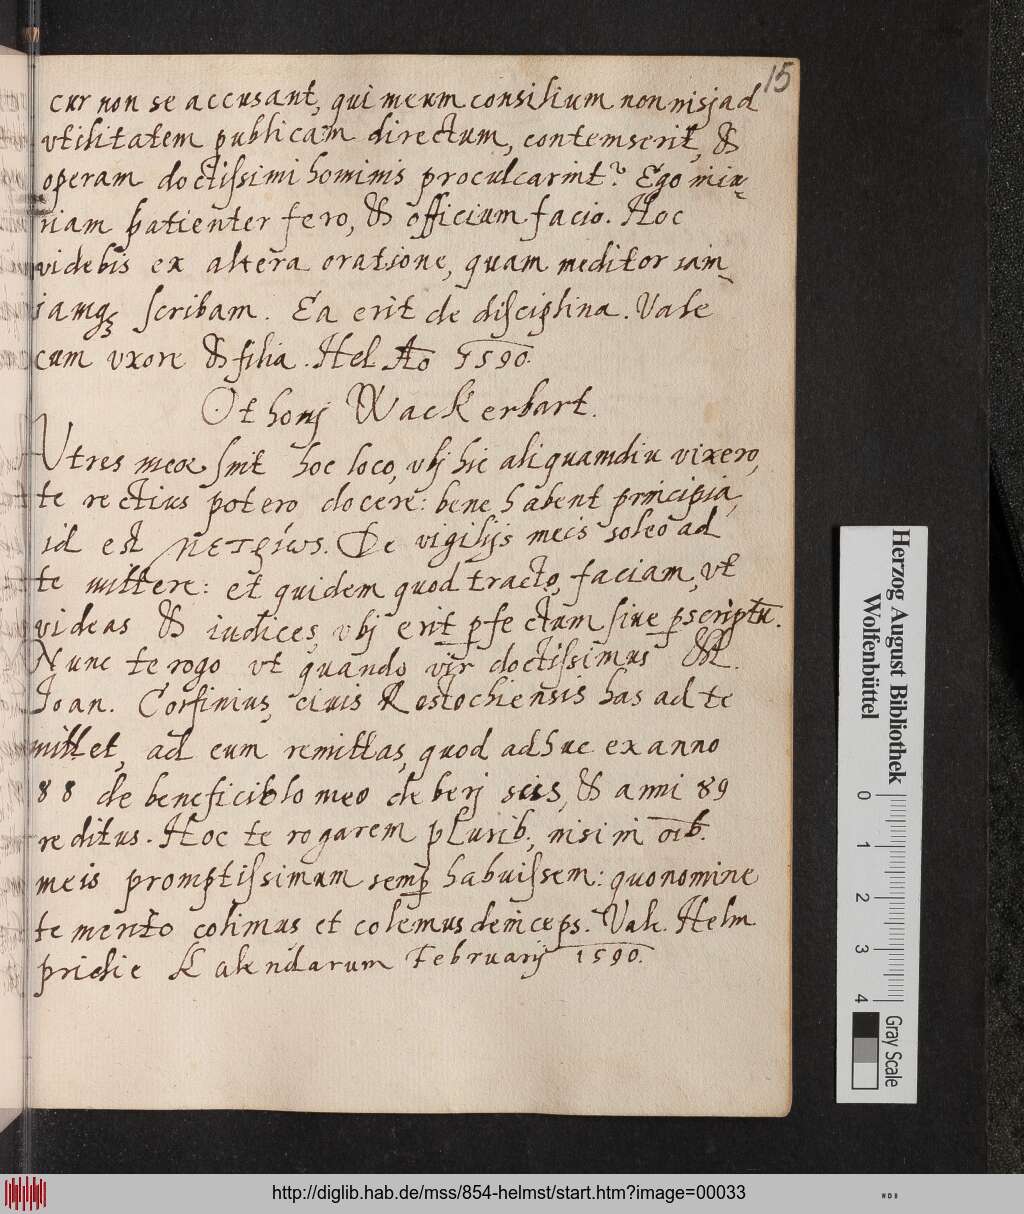 15
cur non se accusant, qui meum consilium non nisj ad
vtilitatem publicam directum, contemserit, &
operam doctissimi hominis proculcarint? Ego iniu-
riam patienter fero, & officium facio. Hoc
videbis ex altera oratione, quam meditor iam
iamq; scribam. Ea erit de disciplina. Vale
cum vxore & filia. Hel. Ao 1590.
Othonj Wackerbart.
Vt res meae sint hoc loco, vbj hic aliquamdiu vixero,
te rectius potero docere: bene habent principia,
id est μετρίως. De vigilijs meis soleo ad
te mittere: et quidem quod tracto, faciam, vt
videas & iudices, vbj erit pfectum siue pscriptū.
Nunc te rogo vt quando vir doctissimus &c.
Joan. Corfinius, ciuis Rostochiensis has ad te
mittet, ad eum remittas, quod adhuc ex anno
88 de beneficiolo meo deberj scis, & anni 89
reditus. Hoc te rogarem plurib., nisi in oīb.
meis promptissimum semp habuissem: quo nomine
te merito colimus et colemus deinceps. Vale. Helm
pridie Kalendarum Februarij 1590.
Herzog August Bibliothek
Wolfenbüttel
0 1 2 3 4
Gray Scale
http://diglib.hab.de/mss/854-helmst/start.htm?image=00033